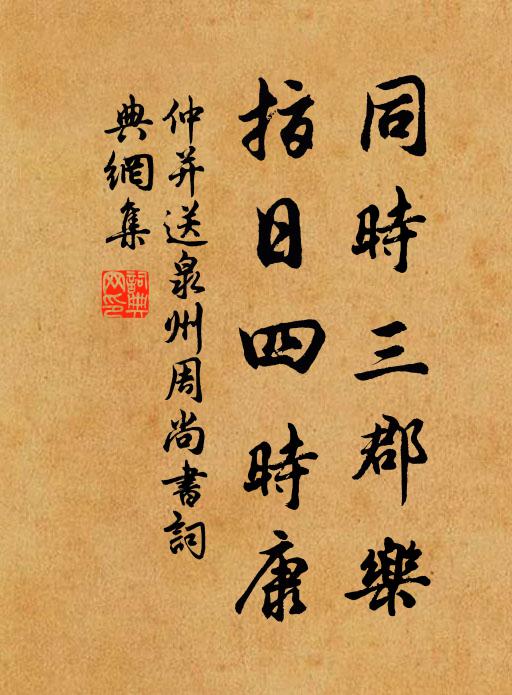 同時三郡樂
指日四時康
仲并送泉州周尚書詞
典網集
詞典
网印